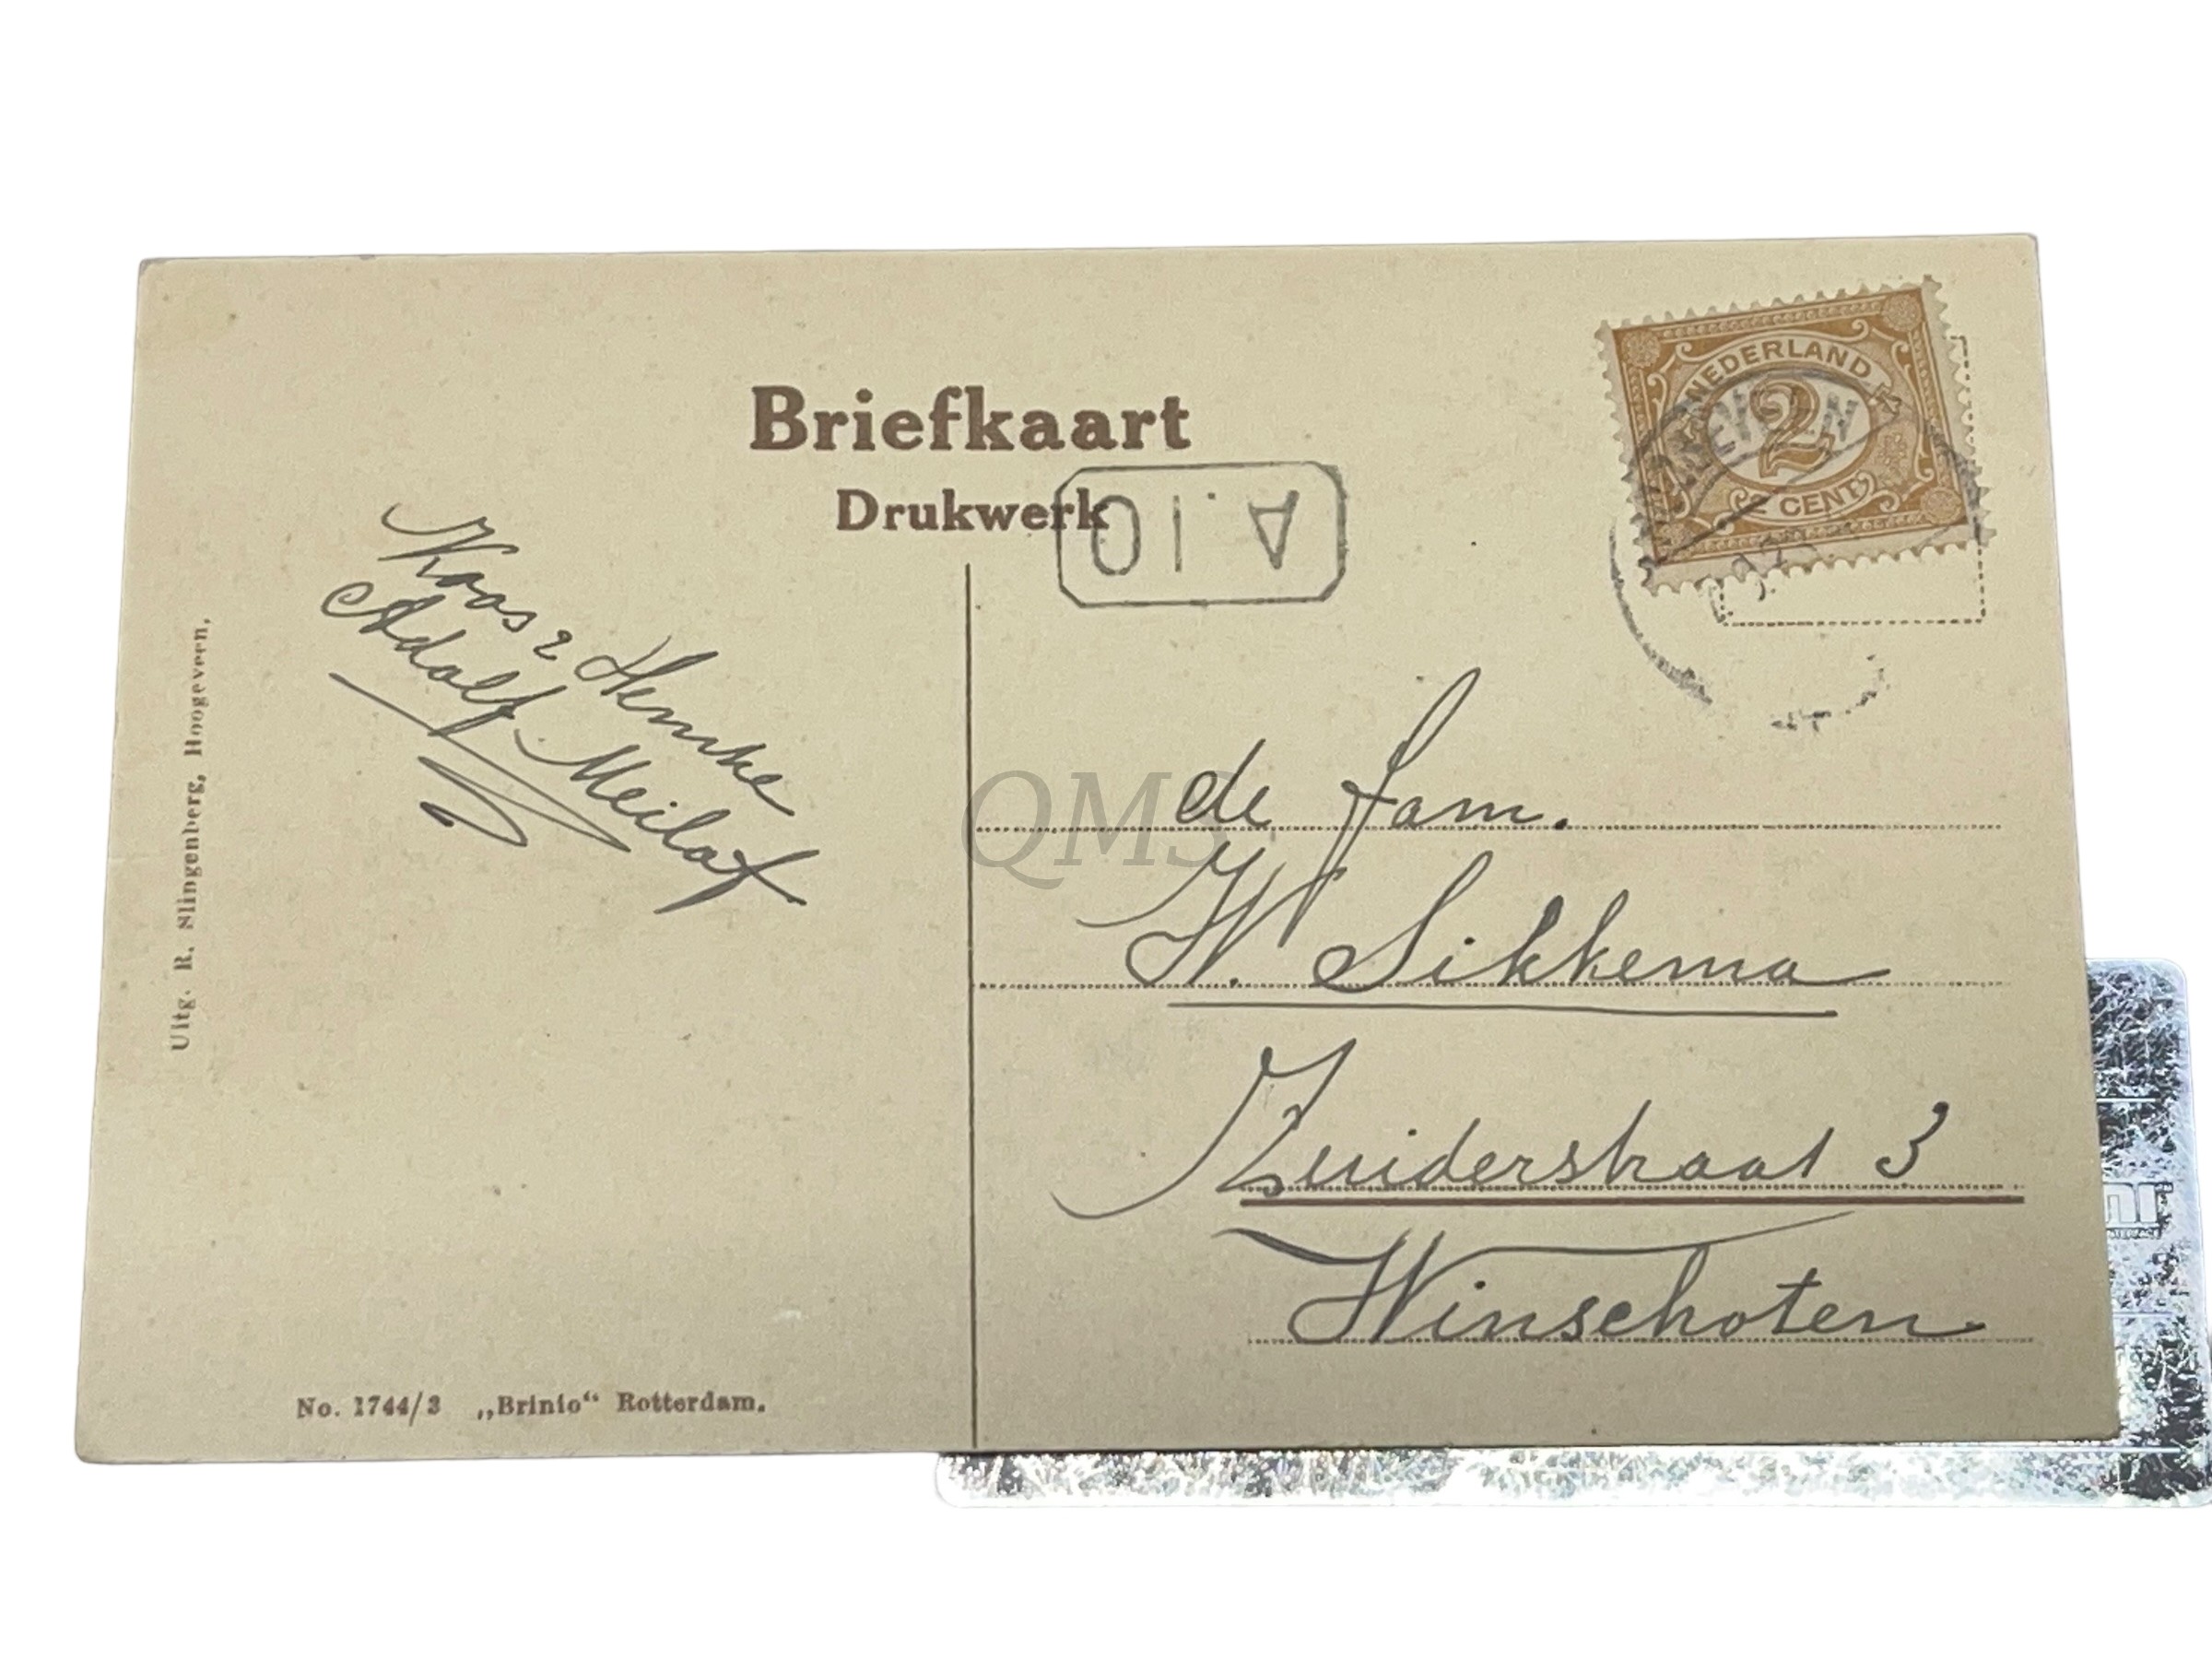 Briefkaart
Drukwerk
A.10
NEDERLAND
2
CENT
Koos & Hemke
Adolf Meilof
de fam.
W. Sikkema
Zuiderstraat 3
Winschoten
Uitg. R. Slingenberg, Hoogeveen.
No. 1744/3 „Brinio“ Rotterdam.
QMS